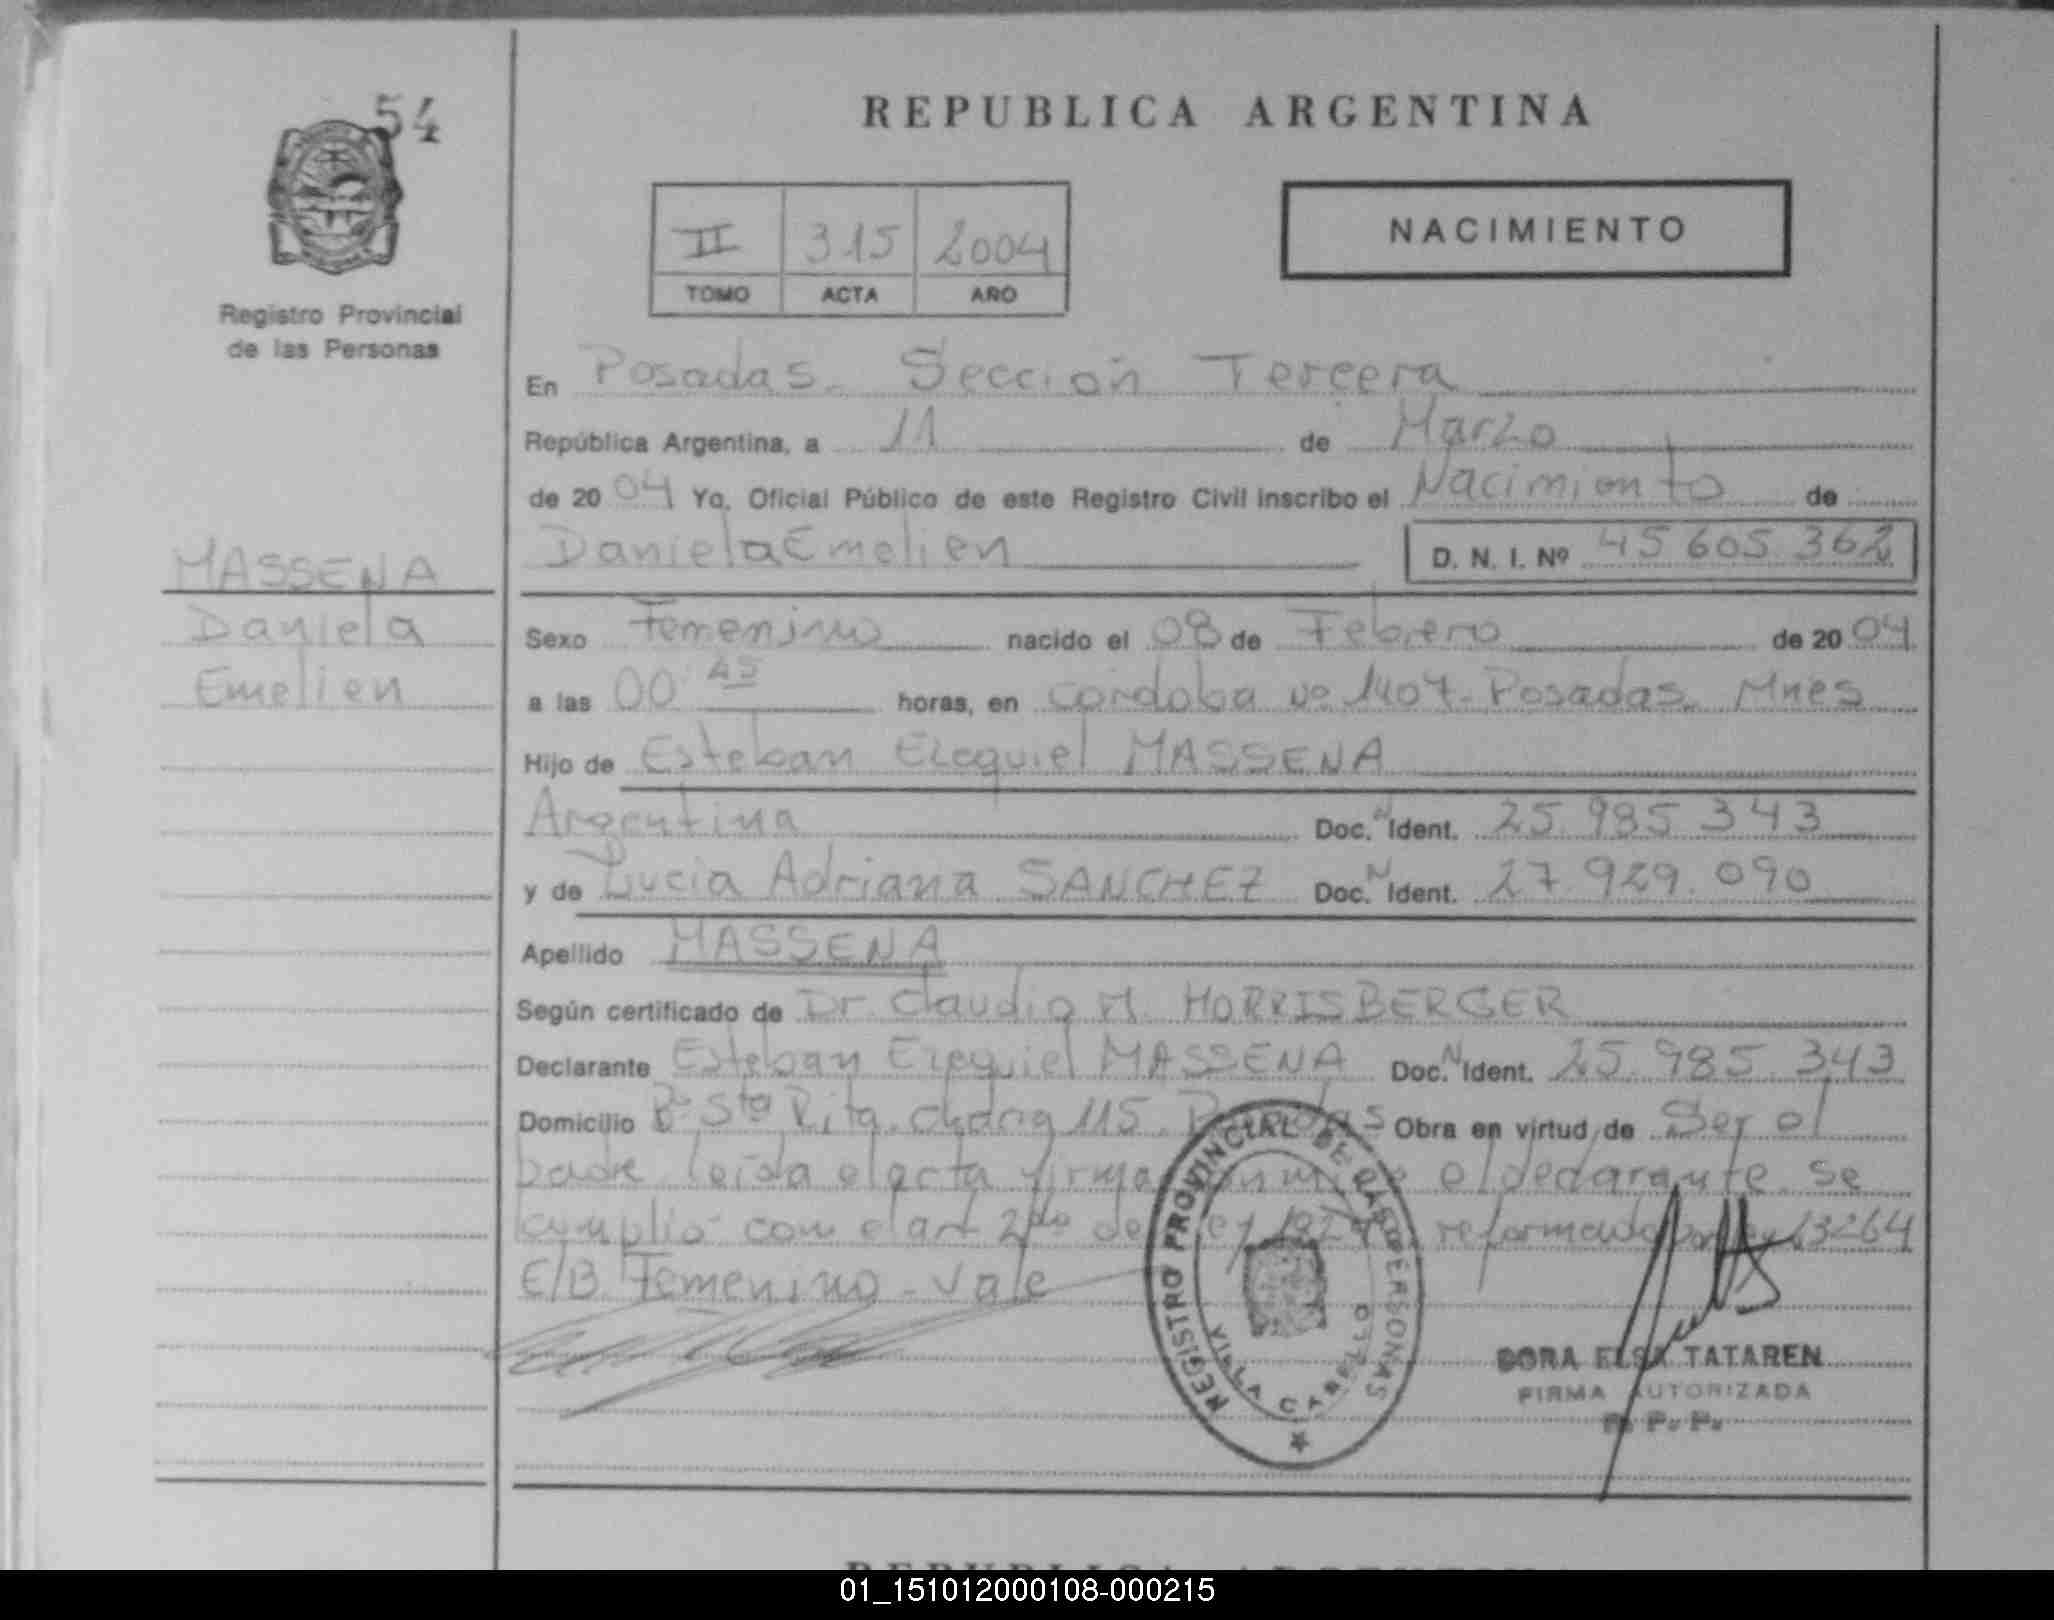 54
REPUBLICA ARGENTINA
NACIMIENTO
II 315 2004
TOMO ACTA AÑO
Registro Provincial
de las Personas
En Posadas. Sección Tercera
República Argentina, a 11 de Marzo
de 2004 Yo, Oficial Público de este Registro Civil inscribo el Nacimiento de
Daniela Emelien D. N. I. Nº 45 605 362
MASSENA
Daniela
Emelien
Sexo Femenino nacido el 08 de Febrero de 2004
a las 00 45 horas, en cordoba Nº 1407- Posadas. Mnes
Hijo de Esteban Ezequiel MASSENA
Argentina Doc. N Ident. 25.985 343
y de Lucia Adriana SANCHEZ Doc. N Ident. 27.929.090
Apellido MASSENA
Según certificado de Dr. Claudio M. HORRISBERGER
Declarante Esteban Ezequiel MASSENA Doc. N Ident. 25.985.343
Domicilio Bº Sta Rita. chacra 115. Posadas Obra en virtud de Ser el
padre leida el acta firma el declarante se
cumplió con el art 2do de reformado por 13264
E/B Femenino - Vale
REGISTRO PROVINCIAL DE LAS PERSONAS
VILLA CABELLO
DORA ELSA TATAREN
FIRMA AUTORIZADA
R. P. P.
REPUBLICA ARGENTINA
01_151012000108-000215